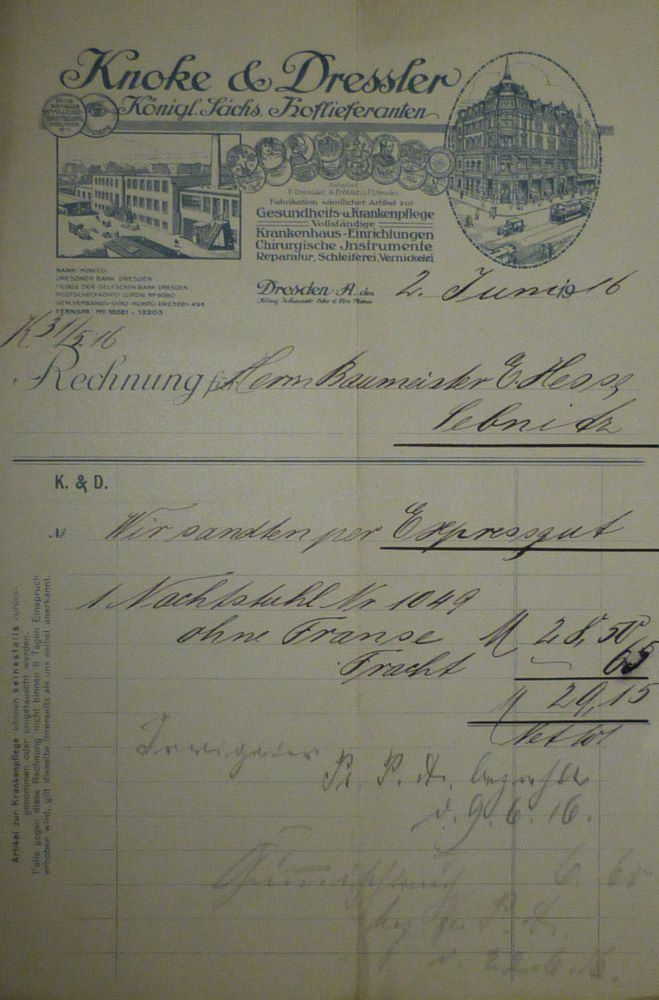 Knoke & Dressler
Königl. Sächs. Hoflieferanten
Fabrikation sämtlicher Artikel zur
Gesundheits- u. Krankenpflege
Vollständige
Krankenhaus-Einrichtungen
Chirurgische Instrumente
Reparatur, Schleiferei, Vernickelei
BANK-KONTO:
DRESDNER BANK DRESDEN
FILIALE DER DEUTSCHEN BANK DRESDEN
POSTSCHECKKONTO LEIPZIG Nº 6080
GEM. VERBANDS-GIRO-KONTO DRESDEN 494
FERNSPR. Nº 18581 u. 13205
Dresden-A. den 2. Juni 1916
K 31/5.16
Rechnung für Herrn Baumeister E. Hesse
Sebnitz
K. & D.
№ Wir sandten per Expressgut
1 Nachtstuhl Nr. 1049
ohne Franse M 28,50
Fracht – 65
M 29,15
Netto!
Irrigator
Pr. P. A. bezahlt
d. 9. 6. 16.
Gummischlauch 6.65
d. 22.6.16.
Artikel zur Krankenpflege können keinesfalls zurück-
genommen oder umgetauscht werden.
Falls gegen diese Rechnung nicht binnen 6 Tagen Einspruch
erhoben wird, gilt dieselbe Ihrerseits als uns selbst anerkannt.